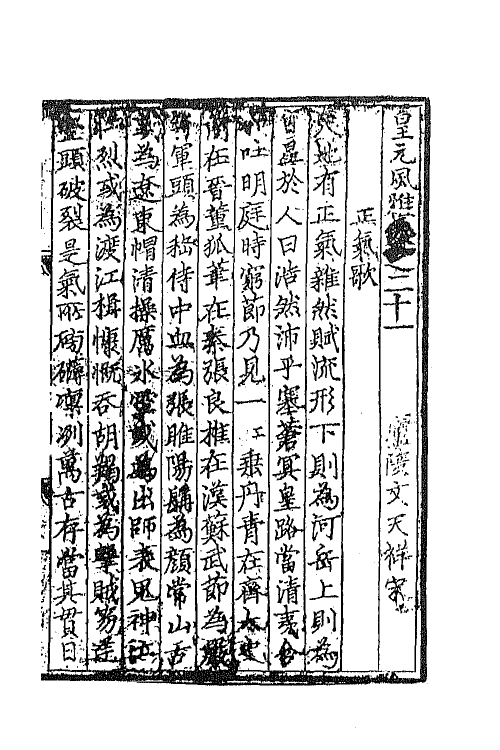 皇元風雅卷之二十一
正氣歌
廬陵文天祥宋
天地有正氣雜然賦流形下則為河岳上則為
日星於人曰浩然沛乎塞蒼冥皇路當清夷含
吐明庭時窮節乃見一一垂丹青在齊太史
在晉董狐筆在秦張良椎在漢蘇武節為嚴
將軍頭為嵇侍中血為張睢陽齒為顏常山舌
或為遼東帽清操厲冰雪或為出師表鬼神泣
壯烈或為渡江楫慷慨吞胡羯或為擊賊笏逆
豎頭破裂是氣所磅礴凛冽萬古存當其貫日